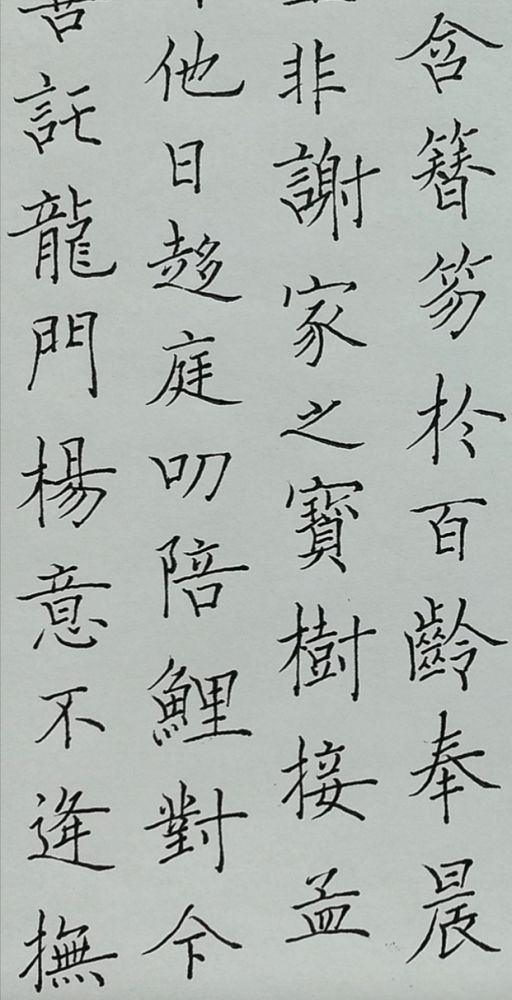 舍簪笏於百齡奉晨
非謝家之寶樹接孟
他日趍庭叨陪鯉對今
託龍門楊意不逢撫